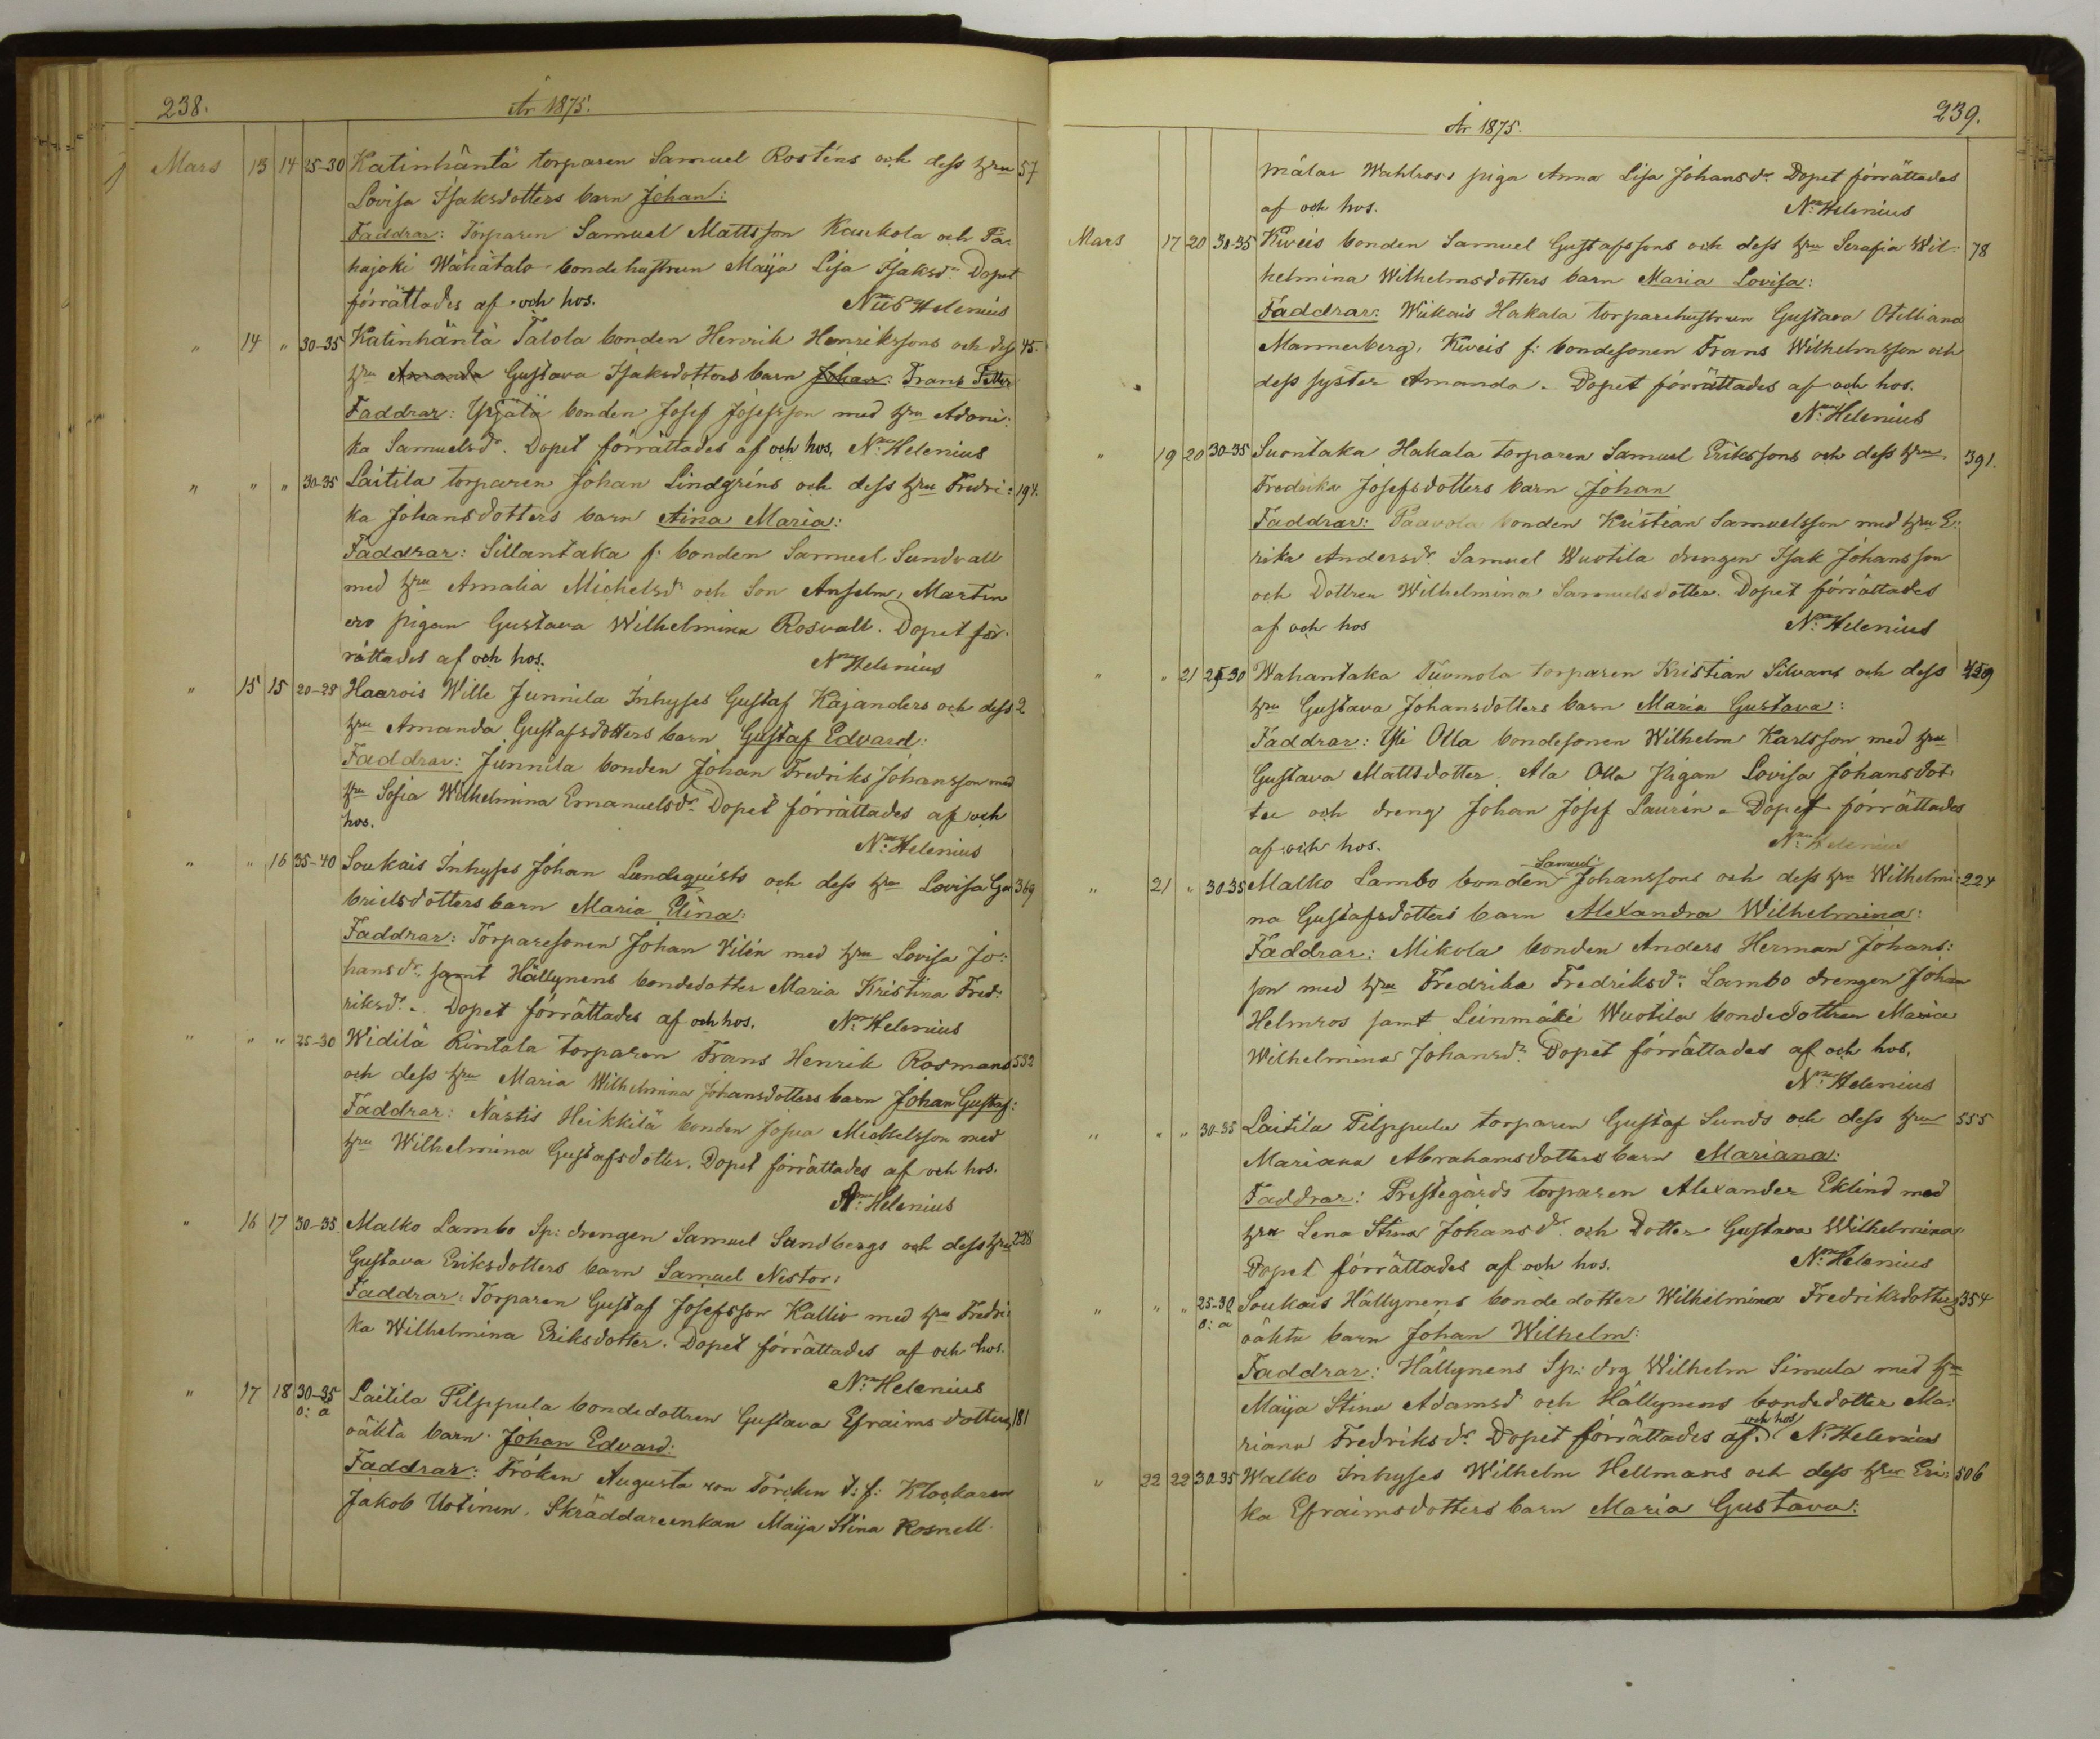 238.
År 1875.
Mars 13 14 25-30 Katinhäntä torparen Samuel Rosténs och dess hru 57
Lovisa Isaksdotters barn Johan:
Faddrar: Torparen Samuel Mattsson Kaukola och Pa-
hajoki Wähätalo bondehustrun Maija Lisa Isaksdr Dopet
förrättades af och hos. Nils Helenius
" 14 " 30-35 Katinhäntä Talola bonden Henrik Henrikssons och dess 45.
hru Amanda Gustava Isaksdotters barn Johan: Frans Petter
Faddrar: Yrjälä bonden Josef Josefsson med hru Adoni-
ka Samuelsdr. Dopet förrättades af och hos. N: Helenius
" " " 30-35 Laitila torparen Johan Lindgréns och dess hru Fredri: 194.
ka Johansdotters barn Aina Maria:
Faddrar: Sillantaka f: bonden Samuel Sundvall
med hru Amalia Michelsdr och Son Anselm, Martin
ero pigan Gustava Wilhelmina Rosvall. Dopet för-
rättades af och hos. N: Helenius
" 15 15 20-25 Haarois Wille Junnila Inhyses Gustaf Kajanders och dess 2
hru Amanda Gustafsdotters barn Gustaf Edvard:
Faddrar: Junnila bonden Johan Fredriks Johansson med
hru Sofia Wilhelmina Emanuelsdr. Dopet förrättades af och
hos. N: Helenius
" " 16 35-40 Soukais Inhyses Johan Lundsquists och dess hru Lovisa Ga- 369
brielsdotters barn Maria Elina:
Faddrar: Torparesonen Johan Vilén med hru Lovisa Jo:
hansdr. samt Hällynens bondedotter Maria Kristina Fred:
riksdr. Dopet förrättades af och hos. N: Helenius
" " " 25-30 Widilä Rintala torparen Frans Henrik Rosmans 532
och dess hru Maria Wilhelmina Johansdotters barn Johan Gustaf:
Faddrar: Nästis Heikkilä bonden Josua Mickelsson med
hru Wilhelmina Gustafsdotter. Dopet förrättades af och hos.
N: Helenius
" 16 17 30-35 Malko Lambo Sp: drengen Samuel Sandbergs och dess hru 228
Gustava Eriksdotters barn Samuel Nestor:
Faddrar: Torparen Gustaf Josefsson Kallio med hru Fredri-
ka Wilhelmina Eriksdotter. Dopet förrättades af och hos.
N: Helenius
" 17 18 30-35 Laitila Pilppula bondedottren Gustava Efraims dotters 181
o: ä oäkta barn Johan Edvard:
Faddrar: Fröken Augusta von Törcken t: f: Klockaren
Jakob Uotinen. Skräddareenkan Maija Stina Rosnell.
239.
År 1875.
målar Wahlross piga Anna Lisa Johansdr. Dopet förrättades
af och hos. N: Helenius
Mars 17 20 30-35 Kiveis bonden Samuel Gustafssons och dess hru Serafia Wil: 78
helmina Wilhelmsdotters barn Maria Lovisa:
Faddrar: Wiikais Hakala torparehustrun Gustava Otelliana
Mannerberg, Kiveis f: bondesonen Frans Wilhelmsson och
dess syster Amanda. Dopet förrättades af och hos.
N: Helenius
" 19 20 30-35 Suontaka Hakala torparen Samuel Erikssons och dess hru 391.
Fredrika Josefsdotters barn Johan
Faddrar: Paavola bonden Kristian Samuelsson med hru E:
rika Andersdr. Samuel Wuotila drengen Isak Johansson
och Dottren Wilhelmina Samuelsdotter. Dopet förrättades
af och hos N: Helenius
" " 21 25-30 Wahantaka Tuomola torparen Kristian Silvans och dess 459
hru Gustava Johansdotters barn Maria Gustava:
Faddrar: Yli Olla bondesonen Wilhelm Karlsson med hru
Gustava Mattsdotter. Ala Olla pigan Lovisa Johansdot-
ter och dreng Johan Josef Laurén. Dopet förrättades
af och hos. N: Helenius
" 21 " 30-35 Malko Lambo bonden Samuel Johanssons och dess hru Wilhelmi: 224
na Gustafsdotters barn Alexandra Wilhelmina:
Faddrar: Mikola bonden Anders Herman Johans:
son med hru Fredrika Fredriksdr. Lambo drengen Johan
Helmros samt Leinmäki Wuotila bondedottren Maria
Wilhelmina Johansdr. Dopet förrättades af och hos.
N: Helenius
" " " 30-35 Laitila Pilppula torparen Gustaf Sunds och dess hru 555
Mariana Abrahamsdotters barn Mariana:
Faddrar: Prestegårds torparen Alexander Eklind med
hru Lena Stina Johansdr. och Dotter Gustava Wilhelmina.
Dopet förrättades af och hos. N: Helenius
" " " 25-30 Soukais Hällynens bonde dotter Wilhelmina Fredriksdotters 354
o: ä oäkta barn Johan Wilhelm:
Faddrar: Hällynens Sp: drg Wilhelm Simula med hru
Maija Stina Adamsd och Hällynens bondedotter Ma:
riana Fredriksdr. Dopet förrättades af och hos. N: Helenius
" 22 22 30-35 Walko Inhyses Wilhelm Hellmans och dess hru Eri: 506
ka Efraimsdotters barn Maria Gustava: